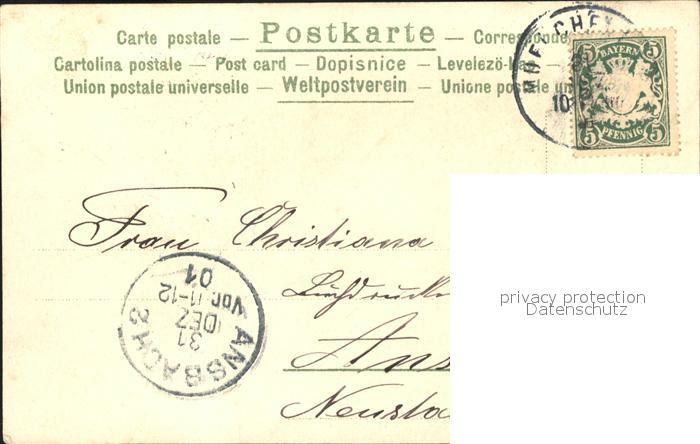 Carte postale — Postkarte — Corresponde
Cartolina postale — Post card — Dopisnice — Levelező-
Union postale universelle — Weltpostverein — Unione postale un
MUENCHEN
10
5 BAYERN 5
5 PFENNIG 5
Frau Christiana
Buchdrucke
Ans
Neusta
ANSBACH 2
31
DEZ
Vor. 11-12
01
privacy protection
Datenschutz